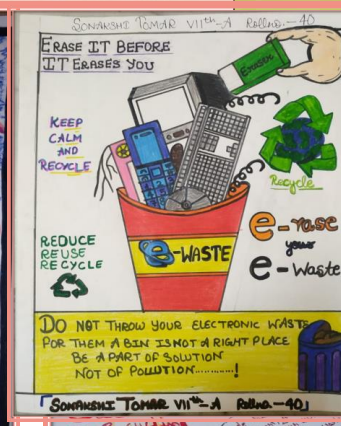 SONAKSHI TOMAR VIIth-A Rollno.-40
ERASE IT BEFORE
IT ERASES YOU
Eraser
KEEP
CALM
AND
RECYCLE
Recycle
e-rase
your
e-Waste
e-WASTE
REDUCE
REUSE
RECYCLE
DO NOT THROW YOUR ELECTRONIC WASTE
FOR THEM A BIN IS NOT A RIGHT PLACE
BE A PART OF SOLUTION
NOT OF POLLUTION..........!
SONAKSHI TOMAR VIIth-A Rollno.-40